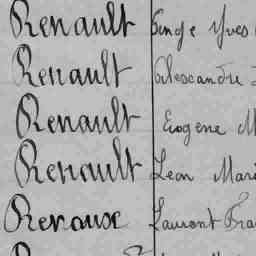 Renault Ange Yves
Renault Alexandre
Renault Eugene M
Renault Leon Mari
Renaux Laurent Fra